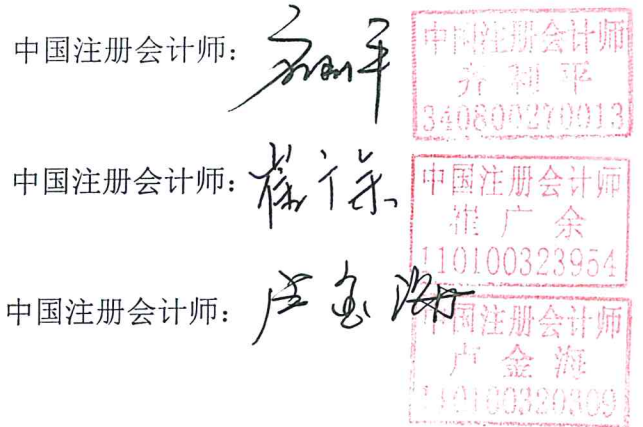 中国注册会计师：齐利平
中国注册会计师
齐利平
340800270013
中国注册会计师：崔广余
中国注册会计师
崔广余
110100323954
中国注册会计师：卢金海
中国注册会计师
卢金海
110100320309